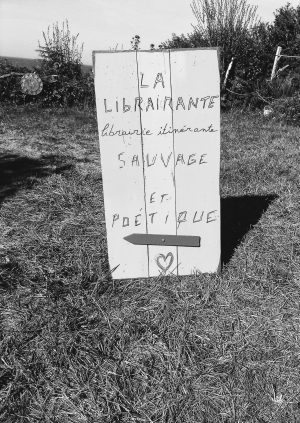 LA
LIBRAIRANTE
librairie itinérante
SAUVAGE
ET
POÉTIQUE